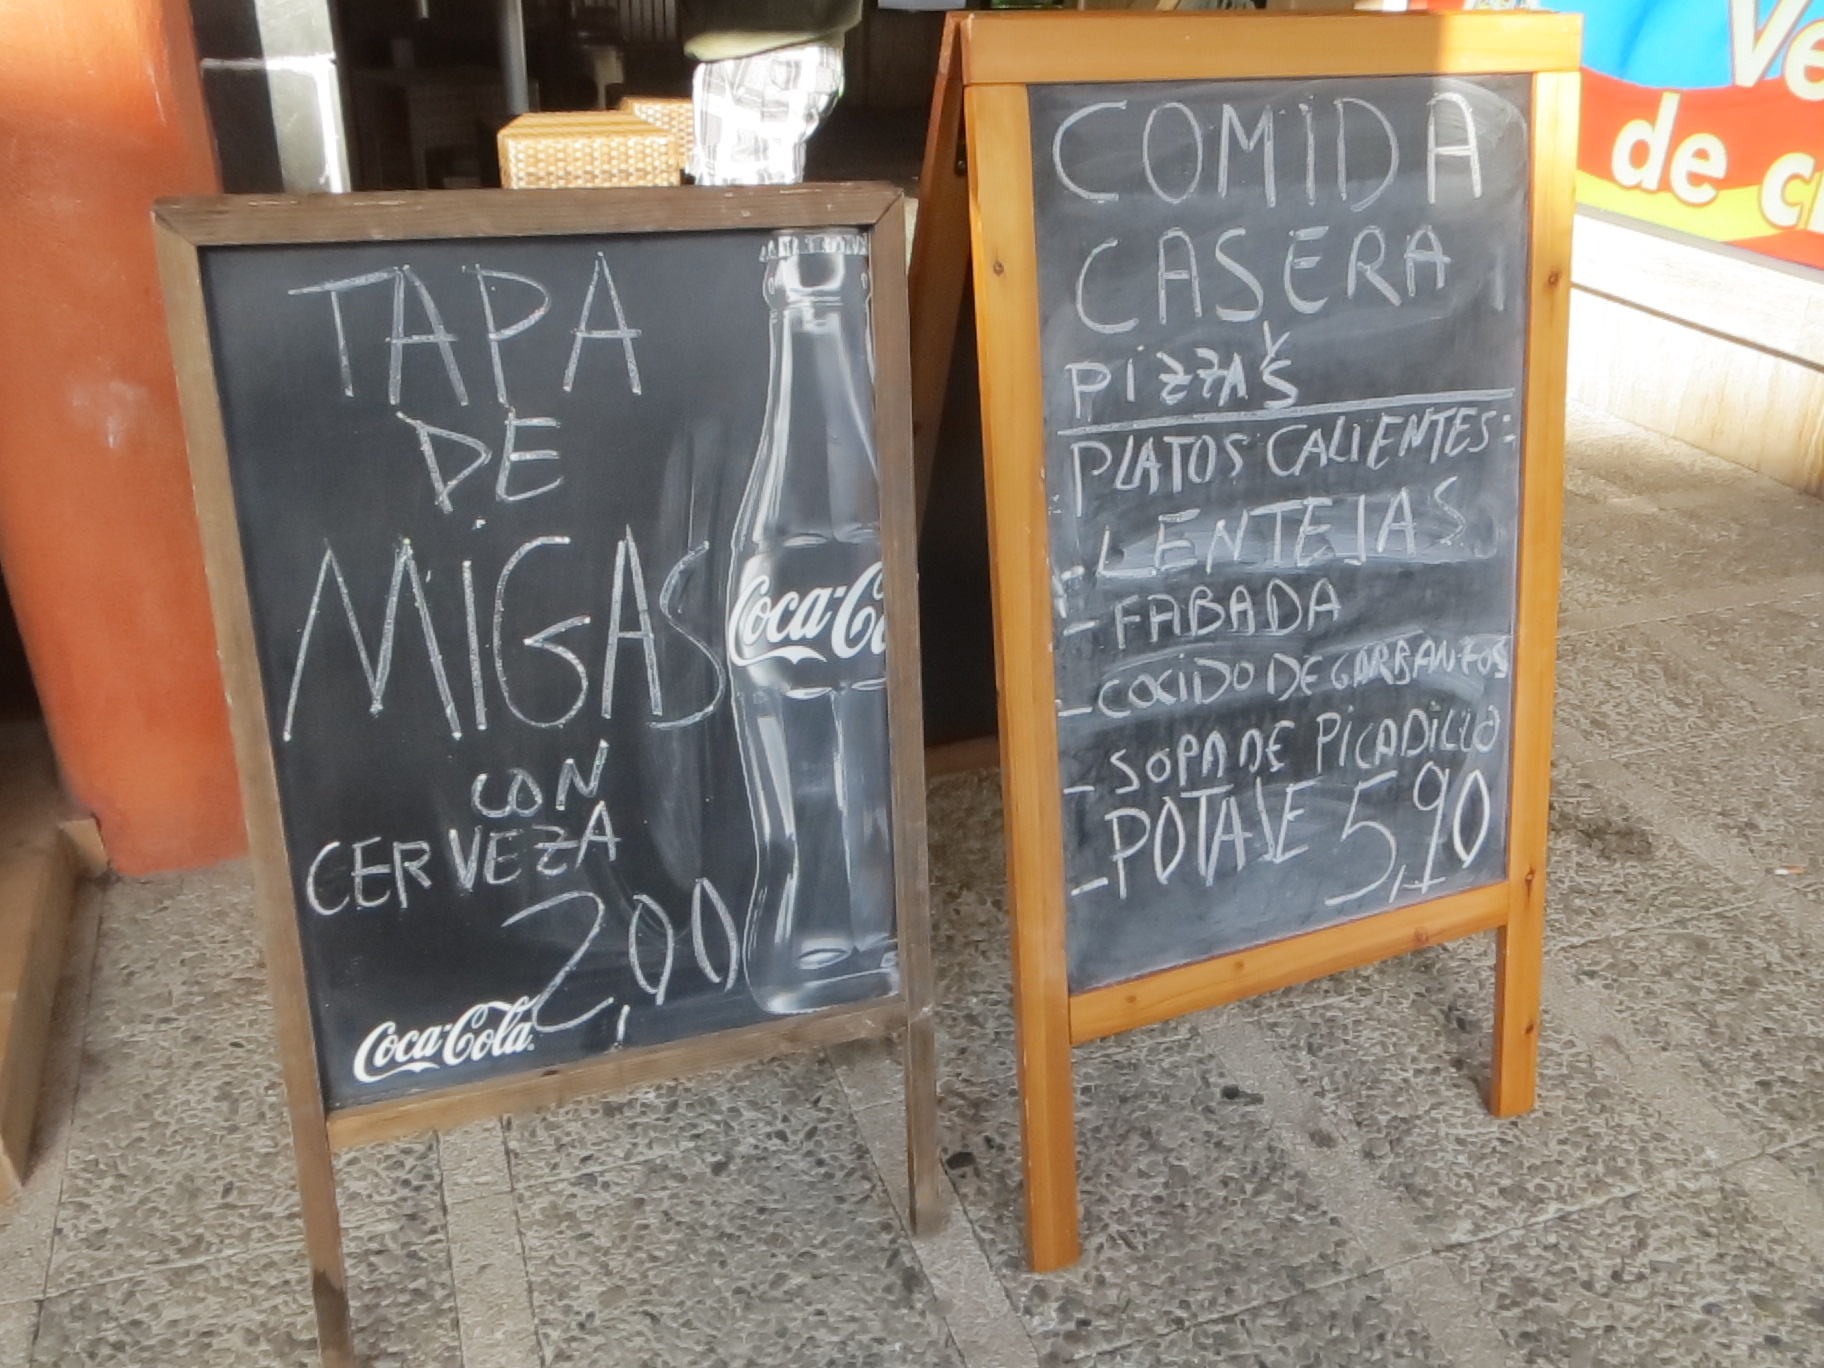 TAPA
DE
MIGAS
CON
CERVEZA
2,00
Coca-Cola
Coca-Co
COMIDA
CASERA
Y
PIZZAS
PLATOS CALIENTES:
- LENTEJAS
- FABADA
- COCIDO DE GARBANZOS
- SOPA DE PICADILLO
- POTAJE 5,90
Ve
de c